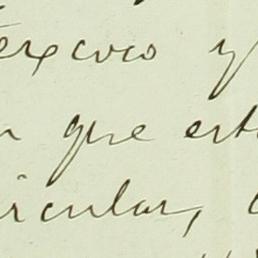 éxcoco y
que est
ircular,